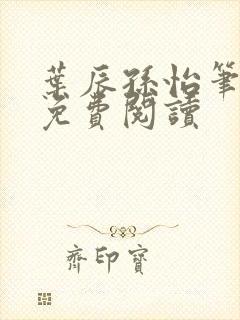 葉辰孫怡筆
免費閱讀
齊印寶